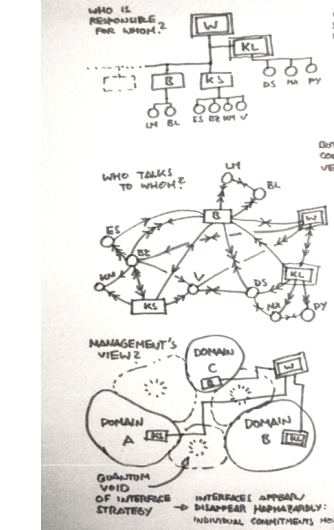 WHO IS
RESPONSIBLE
FOR WHOM?
W
KL
B
KS
DS
MX
PY
LM
BL
ES
BZ
KM
V
WHO TALKS
TO WHOM?
LM
BL
B
W
ES
BZ
KM
KS
V
DS
KL
MX
PY
MANAGEMENT'S
VIEW?
DOMAIN
C
B
W
DOMAIN
A
KS
DOMAIN
B
KL
QUANTUM
VOID
OF INTERFACE
STRATEGY → INTERFACES APPEAR/
DISAPPEAR HAPHAZARDLY.
INDIVIDUAL COMMITMENTS